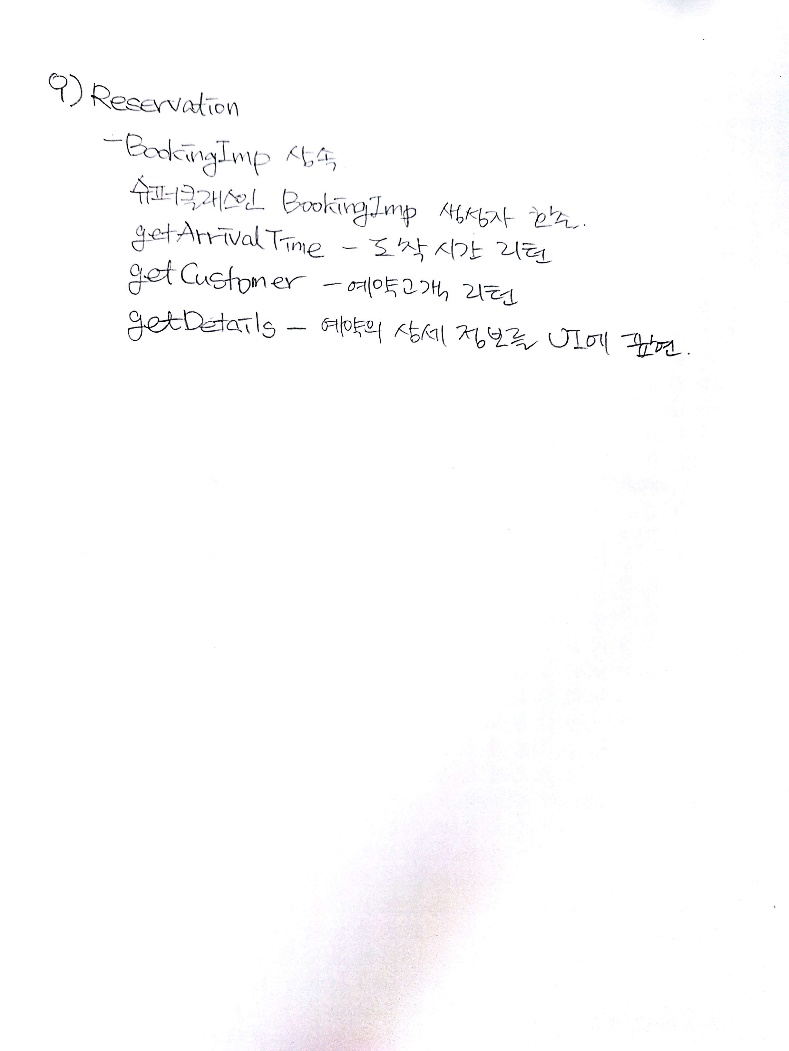 9) Reservation
- BookingImp 상속
슈퍼클래스인 BookingImp 생성자 호출.
getArrivalTime - 도착 시간 리턴
getCustomer - 예약고객 리턴
getDetails - 예약의 상세 정보를 UI에 표현.